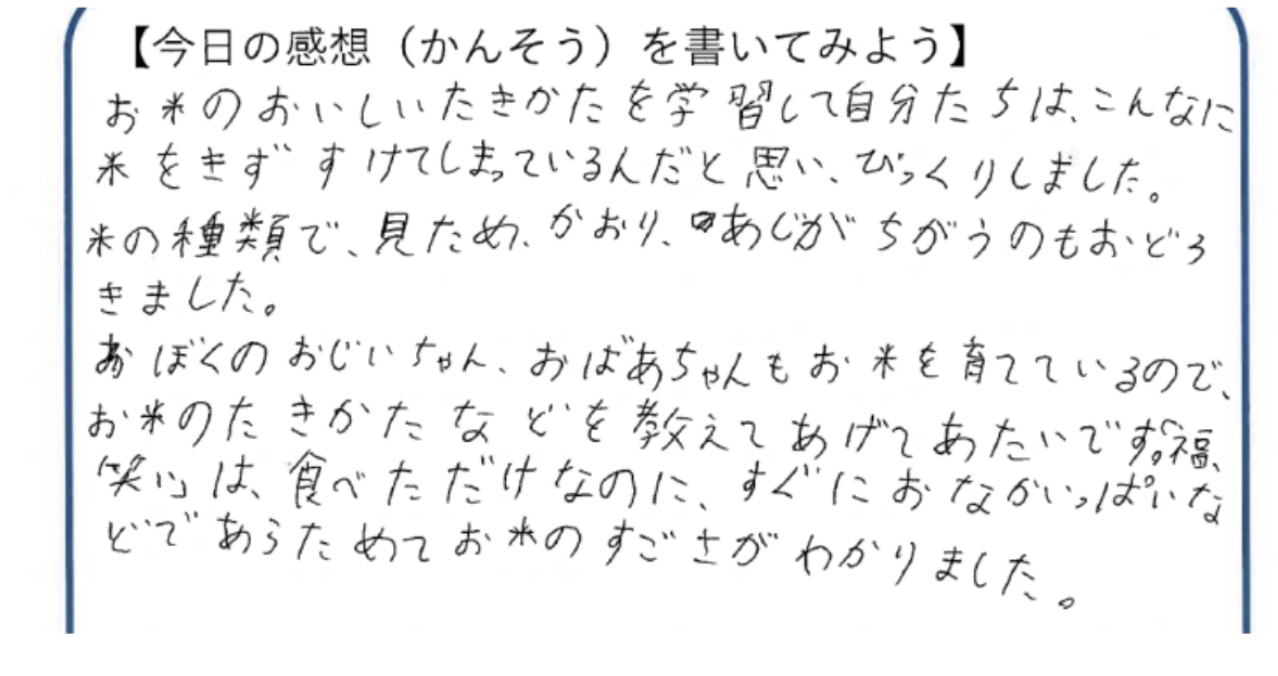 【今日の感想（かんそう）を書いてみよう】
お米のおいしいたきかたを学習して自分たちは、こんなに
米をきずすけてしまっているんだと思い、びっくりしました。
米の種類で、見ため、かおり、あじがちがうのもおどろ
きました。
ぼくのおじいちゃん、おばあちゃんもお米を育てているので、
お米のたきかたなどを教えてあげてあたいです。「福、
笑い」は、食べただけなのに、すぐにおなかいっぱいな
どであらためてお米のすごさがわかりました。